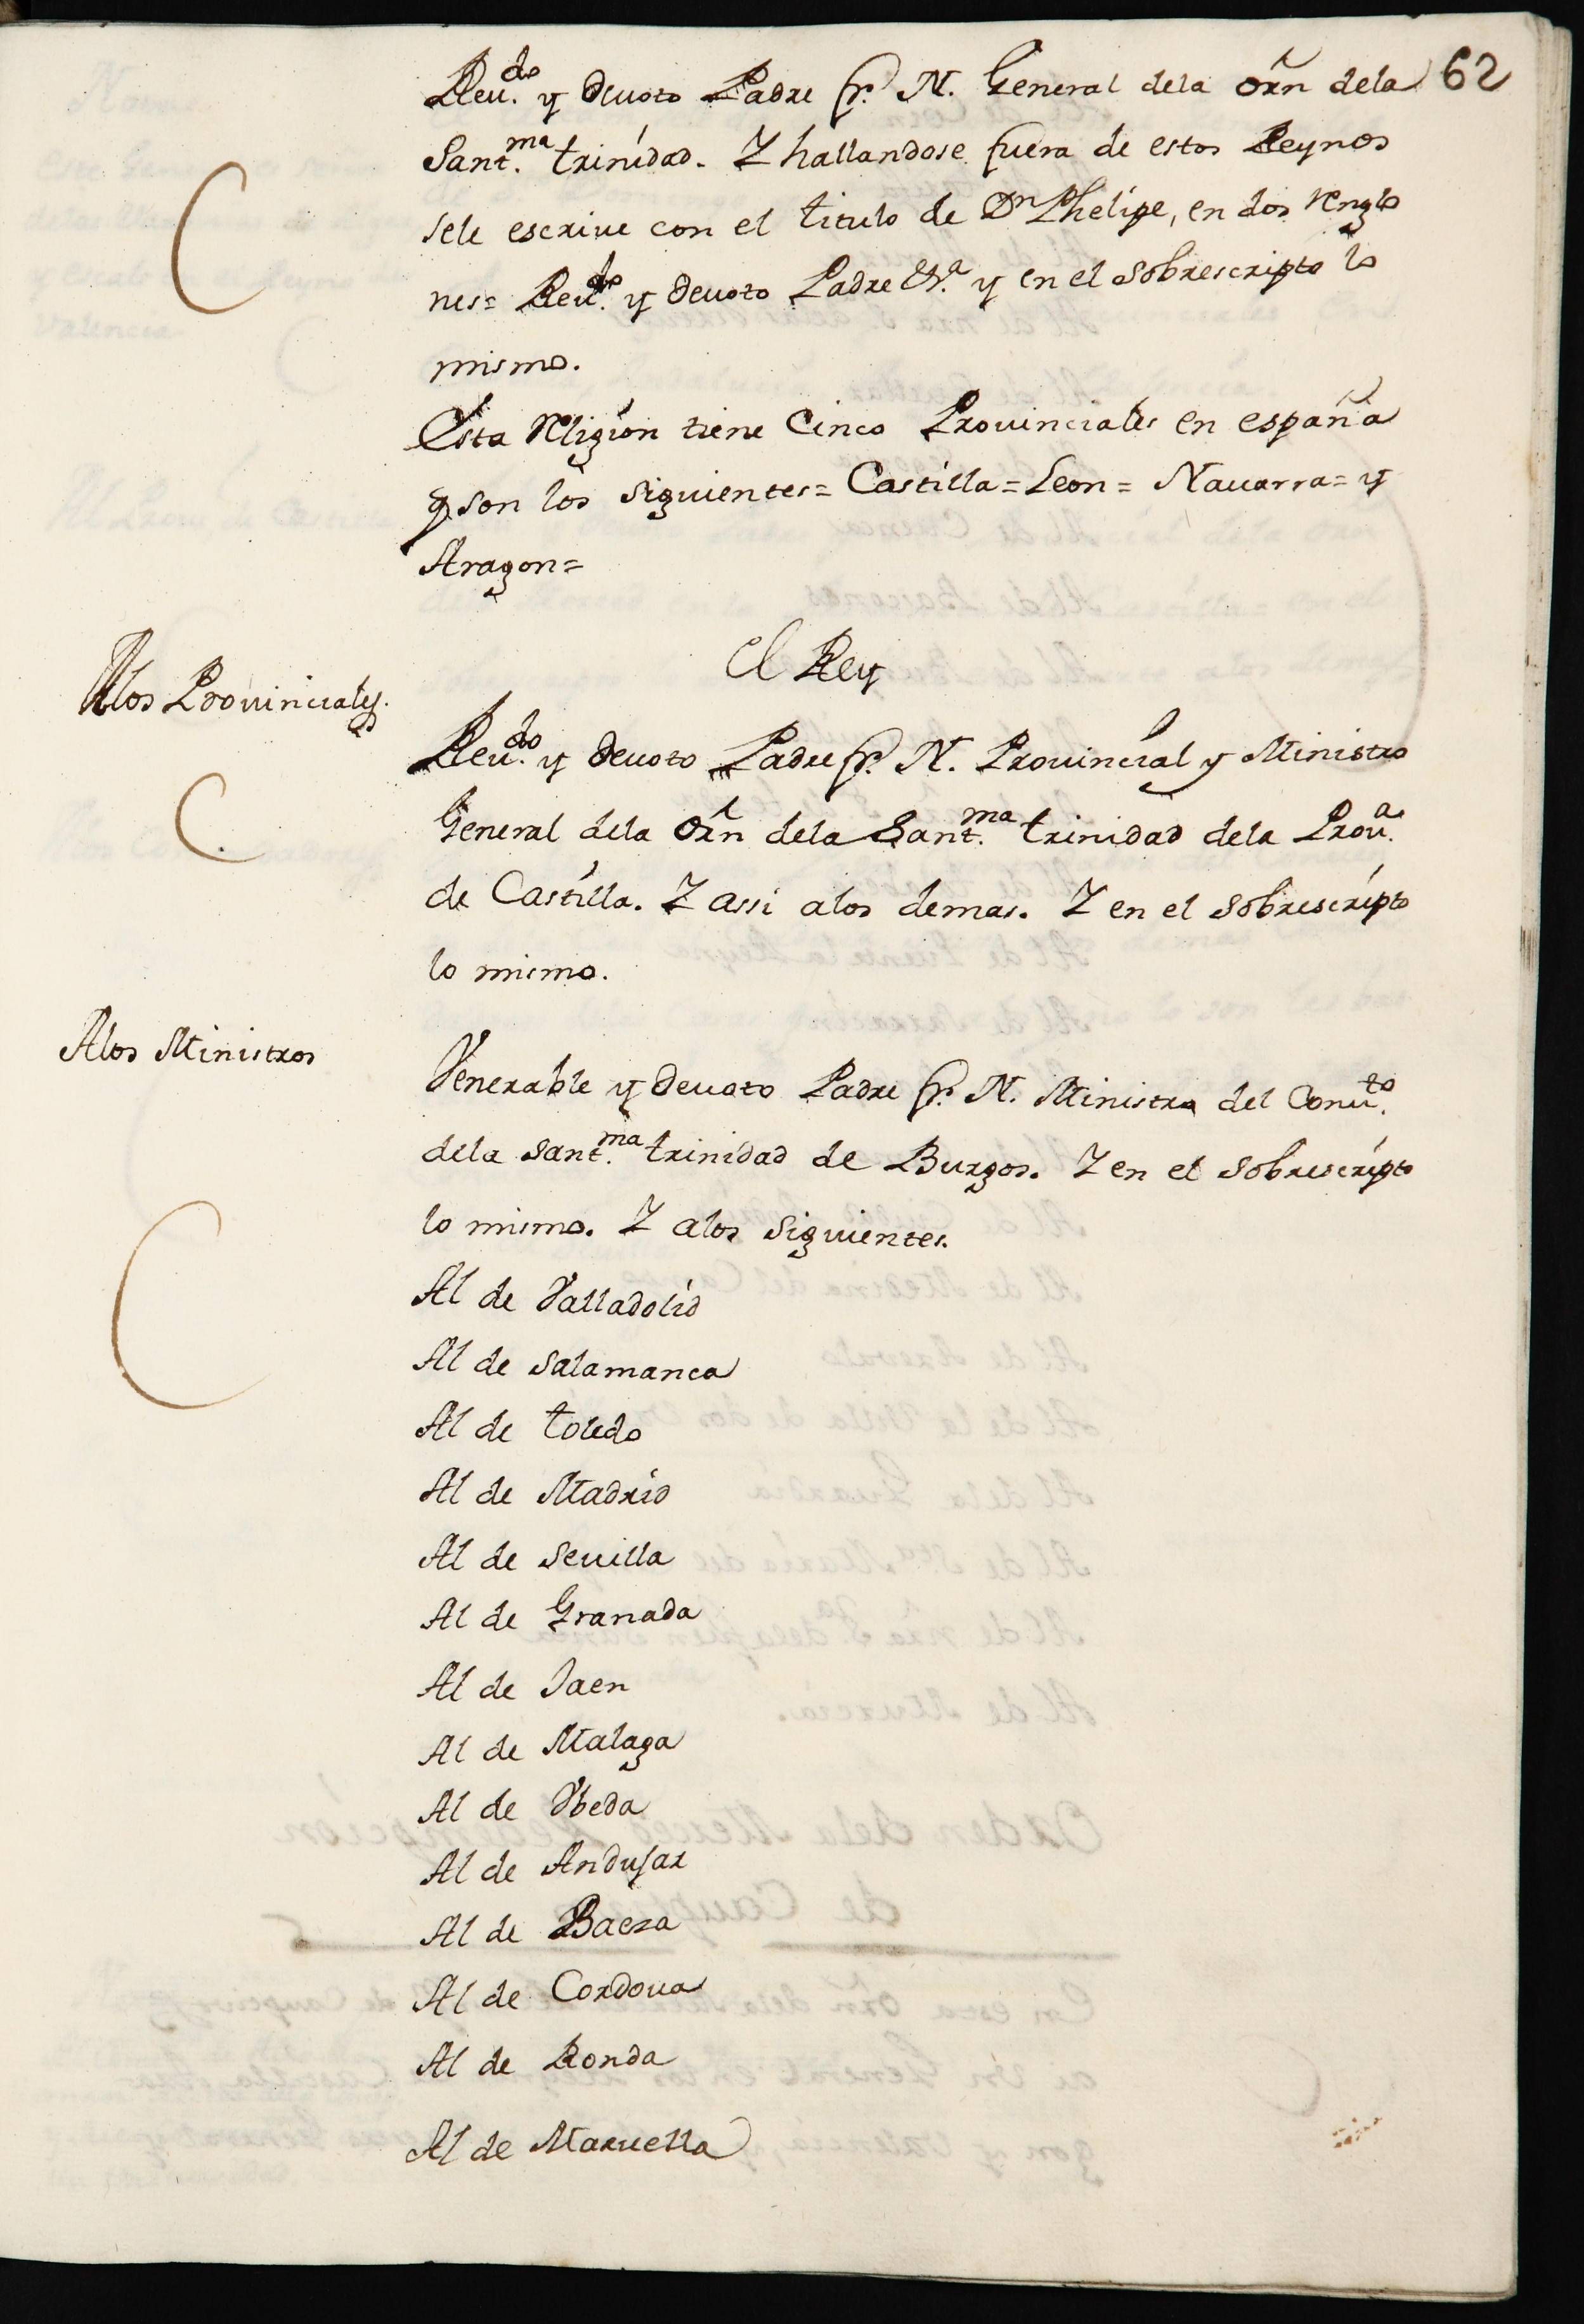 62
Reu.do y deuoto Padre fr. N. General dela Orn dela
Sant.ma trinidad. Y hallandose fuera de estos Reynos
sele escriue con el titulo de Dn Phelipe, en dos renglo
nes= Reu.do y deuoto Padre &.a y en el sobrescripto lo
mismo.
Esta Religion tiene Cinco Prouinciales en españa
q son los siguientes= Castilla= Leon= Nauarra= y
Aragon=
El Rey
Alos Prouinciales.
Reu.do y deuoto Padre fr. N. Prouincial y Ministro
General dela Orn dela Sant.ma trinidad dela Prou.a
de Castilla. Y assi alos demas. Y en el sobrescripto
lo mismo.
Alos Ministros
Venerable y deuoto Padre fr. N. Ministro del Conu.to
dela Sant.ma trinidad de Burgos. Y en el sobrescripto
lo mismo. Y alos siguientes.
Al de Valladolid
Al de Salamanca
Al de toledo
Al de Madrid
Al de Seuilla
Al de Granada
Al de Jaen
Al de Malaga
Al de Vbeda
Al de Andujar
Al de Baeza
Al de Cordoua
Al de Ronda
Al de Maruella